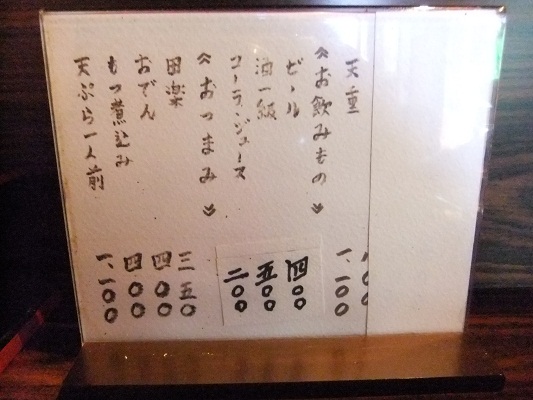 天重 一、一〇〇
《お飲みもの》
ビール 四〇〇
酒一級 五〇〇
コーラ、ジュース 二〇〇
《おつまみ》
田楽 三五〇
おでん 四〇〇
もつ煮込み 四〇〇
天ぷら一人前 一、一〇〇